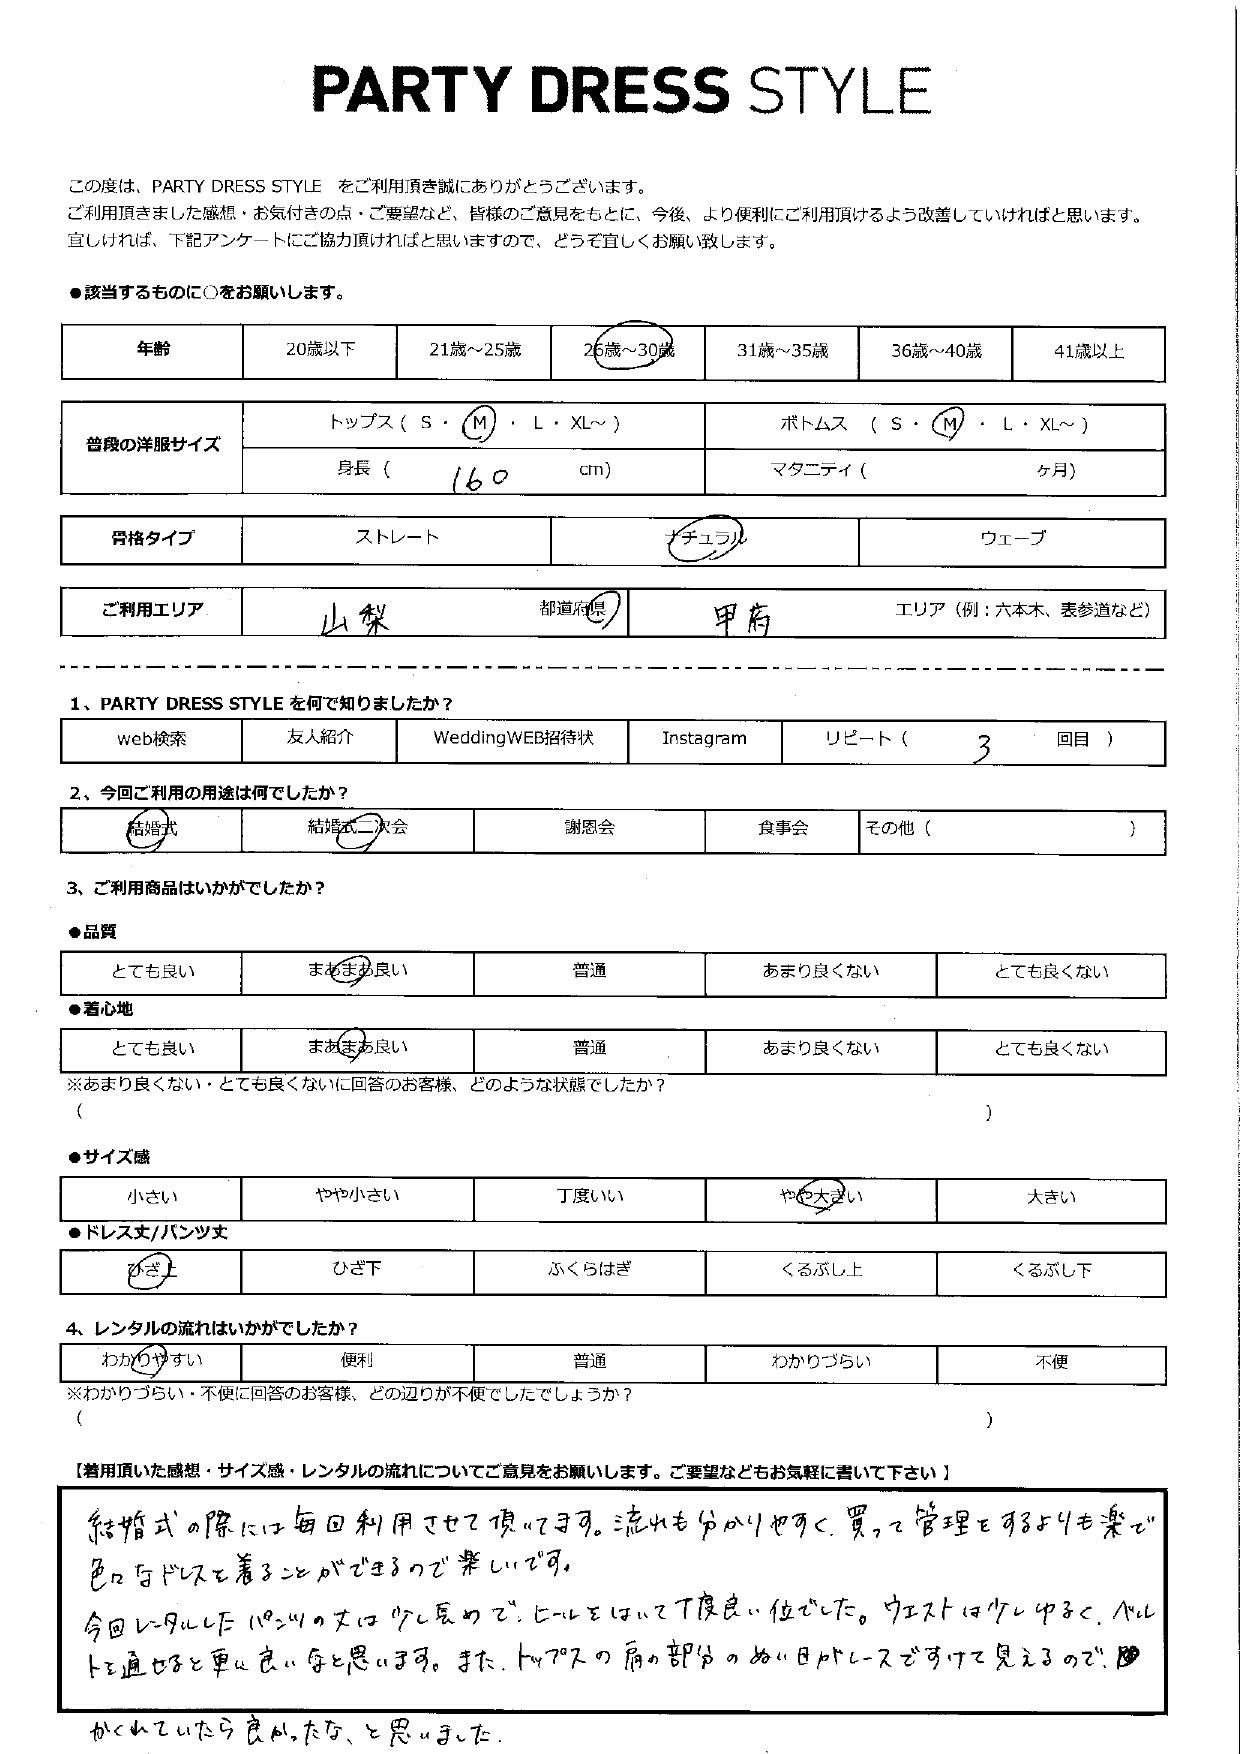 PARTY DRESS STYLE
この度は、PARTY DRESS STYLE をご利用頂き誠にありがとうございます。
ご利用頂きました感想・お気付きの点・ご要望など、皆様のご意見をもとに、今後、より便利にご利用頂けるよう改善していければと思います。
宜しければ、下記アンケートにご協力頂ければと思いますので、どうぞ宜しくお願い致します。
●該当するものに○をお願いします。
年齢 20歳以下 21歳～25歳 26歳～30歳 31歳～35歳 36歳～40歳 41歳以上
普段の洋服サイズ トップス ( S ・ M ・ L ・ XL～ ) ボトムス ( S ・ M ・ L ・ XL～ )
身長 ( 160 cm) マタニティ ( ヶ月)
骨格タイプ ストレート ナチュラル ウェーブ
ご利用エリア 山梨 都道府県 甲府 エリア（例：六本木、表参道など）
1、PARTY DRESS STYLE を何で知りましたか？
web検索 友人紹介 WeddingWEB招待状 Instagram リピート ( 3 回目 )
2、今回ご利用の用途は何でしたか？
結婚式 結婚式二次会 謝恩会 食事会 その他 ( )
3、ご利用商品はいかがでしたか？
●品質
とても良い まあまあ良い 普通 あまり良くない とても良くない
●着心地
とても良い まあまあ良い 普通 あまり良くない とても良くない
※あまり良くない・とても良くないに回答のお客様、どのような状態でしたか？
( )
●サイズ感
小さい やや小さい 丁度いい やや大きい 大きい
●ドレス丈/パンツ丈
ひざ上 ひざ下 ふくらはぎ くるぶし上 くるぶし下
4、レンタルの流れはいかがでしたか？
わかりやすい 便利 普通 わかりづらい 不便
※わかりづらい・不便に回答のお客様、どの辺りが不便でしたでしょうか？
( )
【着用頂いた感想・サイズ感・レンタルの流れについてご意見をお願いします。ご要望などもお気軽に書いて下さい 】
結婚式の際には毎回利用させて頂いてます。流れも分かりやすく、買って管理をするよりも楽で
色々なドレスを着ることができるので楽しいです。
今回レンタルしたパンツの丈は少し長めで、ヒールをはいて丁度良い位でした。ウエストは少しゆるく、ベル
トを通せると更に良いなと思います。また、トップスの肩の部分のぬい目がレースですけて見えるので、
かくれていたら良かったな、と思いました。